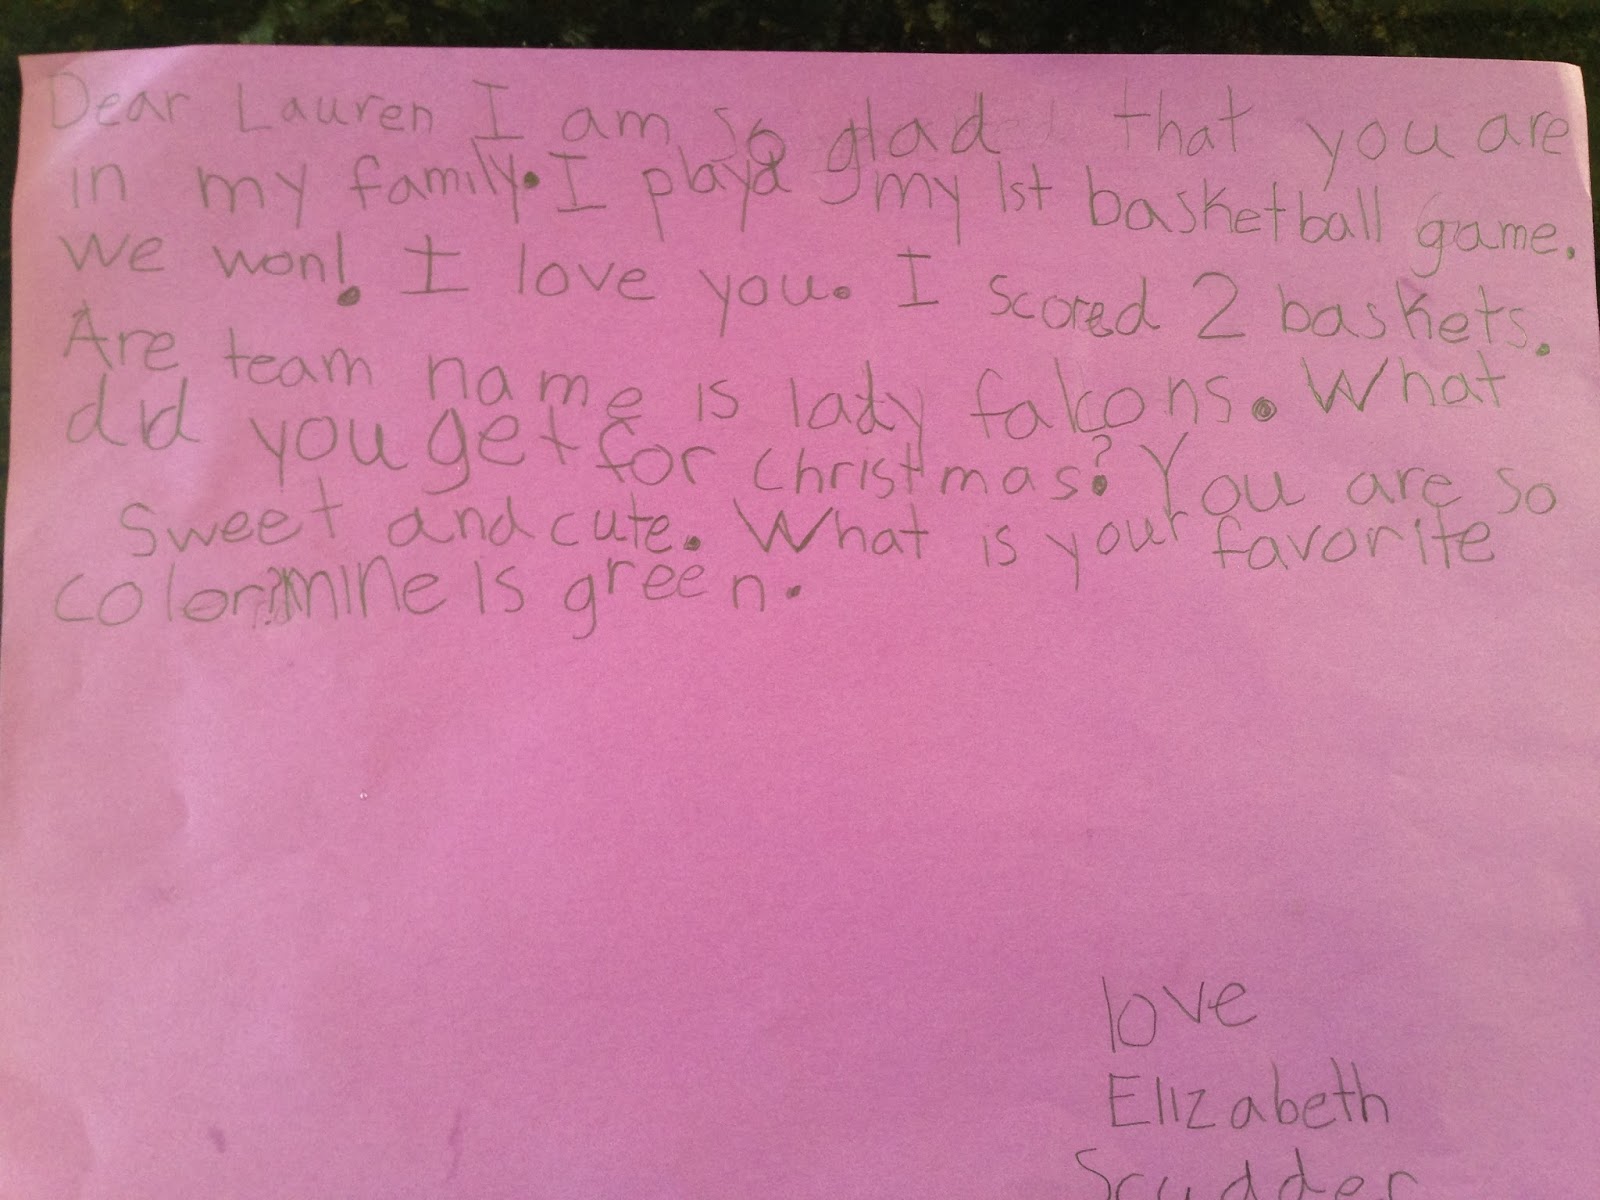 Dear Lauren I am so glad that you are
in my family. I playd my 1st basketball game.
we won! I love you. I scored 2 baskets.
Are team name is lady falcons. What
did you get for christmas? You are so
sweet and cute. What is your favorite
color? mine is green.
love
Elizabeth
Scudder